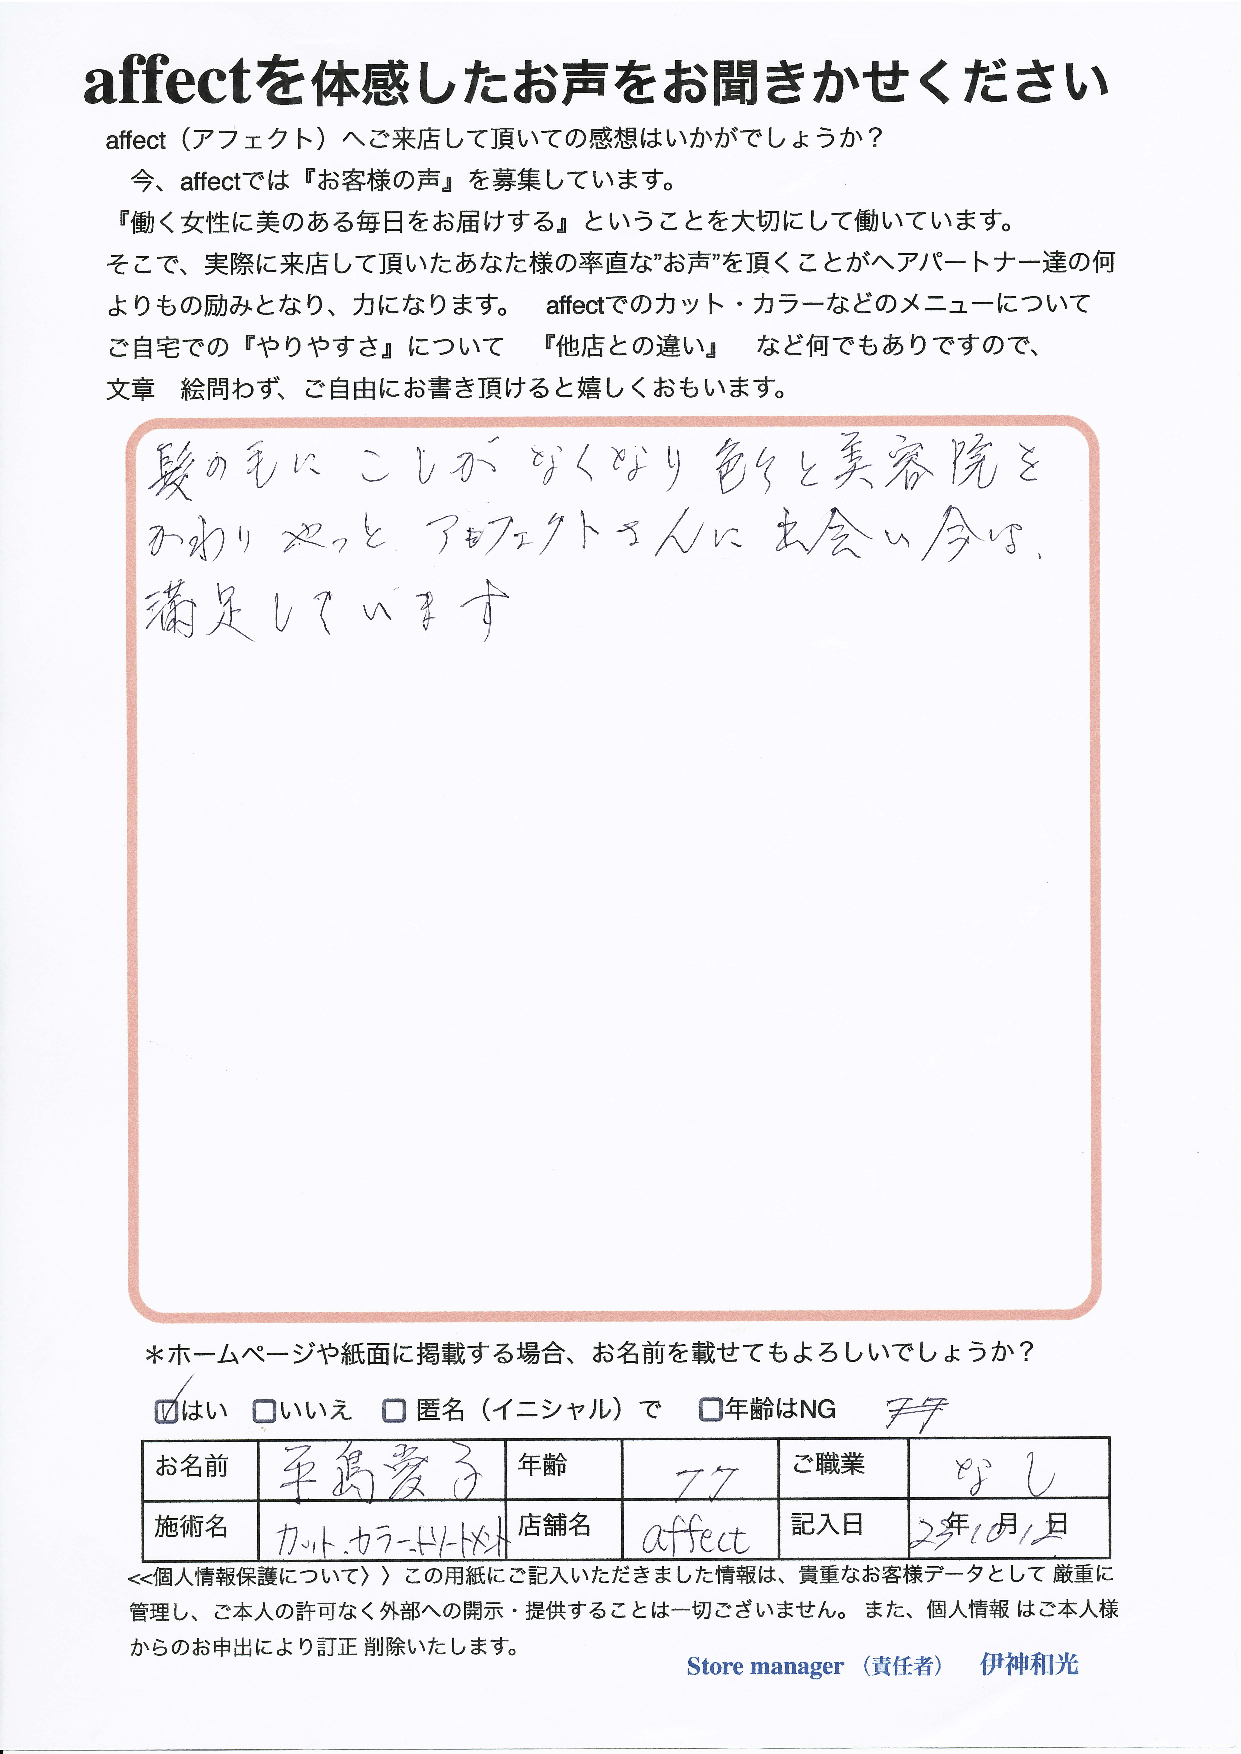 affectを体感したお声をお聞きかせください
affect（アフェクト）へご来店して頂いての感想はいかがでしょうか？
今、affectでは『お客様の声』を募集しています。
『働く女性に美のある毎日をお届けする』ということを大切にして働いています。
そこで、実際に来店して頂いたあなた様の率直な”お声”を頂くことがヘアパートナー達の何
よりもの励みとなり、力になります。　affectでのカット・カラーなどのメニューについて
ご自宅での『やりやすさ』について　『他店との違い』　など何でもありですので、
文章　絵問わず、ご自由にお書き頂けると嬉しくおもいます。
髪の毛に こしが なくなり 色々と美容院を
かわり やっと アフェクトさんに 出会い 今は、
満足しています
＊ホームページや紙面に掲載する場合、お名前を載せてもよろしいでしょうか？
☑はい □いいえ □ 匿名（イニシャル）で □年齢はNG 77
お名前 平島愛子 年齢 77 ご職業 なし
施術名 カット、カラー、トリートメント 店舗名 affect 記入日 23年10月12日
<<個人情報保護について〉〉この用紙にご記入いただきました情報は、貴重なお客様データとして 厳重に
管理し、ご本人の許可なく外部への開示・提供することは一切ございません。 また、個人情報 はご本人様
からのお申出により訂正 削除いたします。
Store manager （責任者）　伊神和光